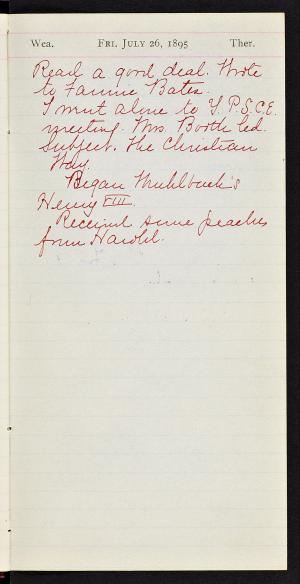 Wea. Fri. July 26, 1895 Ther.
Read a good deal. Wrote
to Fannie Bates.
I went alone to Y.P.S.C.E.
meeting. Mrs. Booth led.
Subject. The Christian
Way.
Began Muhlbach's
Henry VIII.
Received some peaches
from Harold.